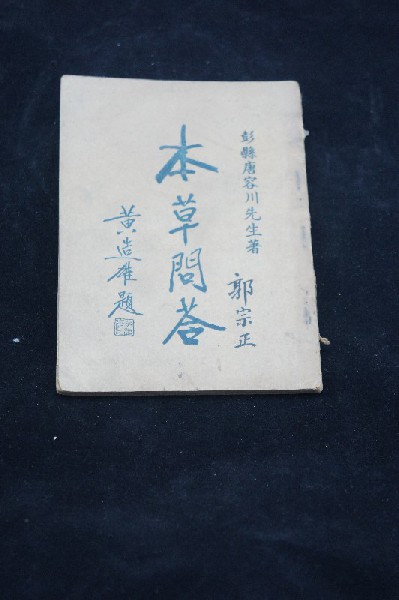 彭縣唐容川先生著
郭宗正
本草問荅
黃造雄題